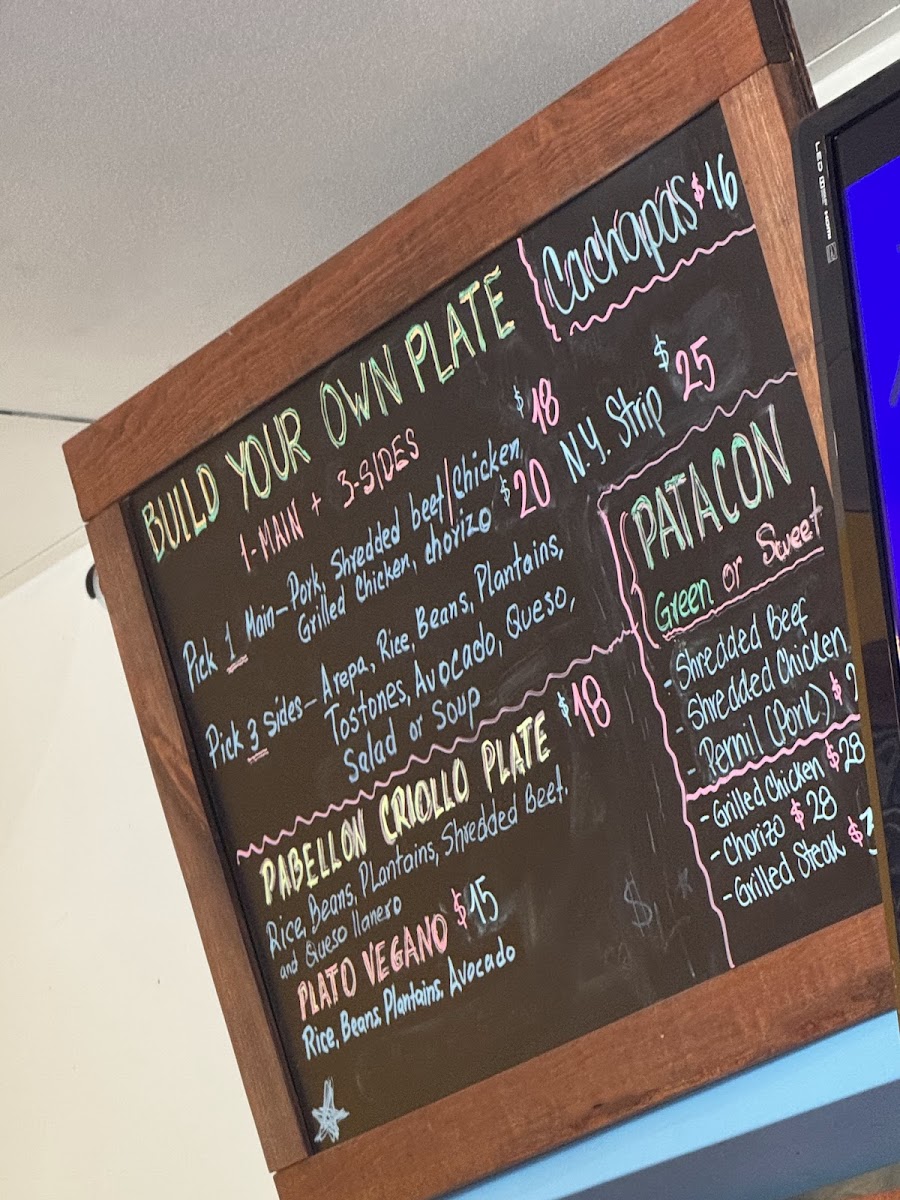 BUILD YOUR OWN PLATE
1-MAIN + 3-SIDES
Pick 1 Main - Pork, Shredded beef/Chicken, $18
Grilled Chicken, chorizo $20
N.Y. Strip $25
Pick 3 Sides - Arepa, Rice, Beans, Plantains,
Tostones, Avocado, Queso,
Salad or Soup
PABELLON CRIOLLO PLATE $18
Rice, Beans, Plantains, Shredded Beef,
and Queso llanero
PLATO VEGANO $15
Rice, Beans, Plantains, Avocado
Cachapas $16
PATACON
Green or Sweet
- Shredded Beef
- Shredded Chicken
- Pernil (Pork) $
- Grilled Chicken $28
- Chorizo $28
- Grilled Steak $
LED
HDMI